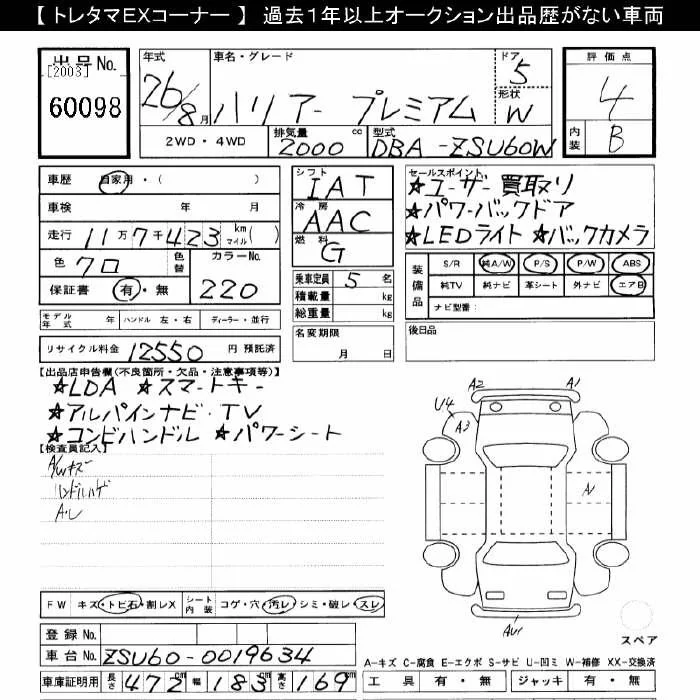 【 トレタマEXコーナー 】 過去1年以上オークション出品歴がない車両
出品No.
[2003]
60098
年式
26/8月
車名・グレード
ハリアー プレミアム
ドア
5
形状
W
評価点
4
内装
B
2WD・4WD
排気量
2000
cc
型式
DBA-ZSU60W
車歴
自家用・( )
車検
年 月
走行
11万7千423
km
マイル
( )
色
クロ
色替
カラーNo.
220
保証書
有・無
シフト
IAT
冷房
AAC
燃料
G
乗車定員 5 名
積載量 kg
総重量 kg
名変期限
月 日
セールスポイント
★ユーザー買取り
★パワーバックドア
★LEDライト ★バックカメラ
装備品
S/R 純A/W P/S P/W ABS
純TV 純ナビ 革シート 外ナビ エアB
ナビ型番:
後日品
モデル年式 年
ハンドル 左・右
ディーラー・並行
リサイクル料金 12550 円 預託済
【出品店申告欄(不良箇所・欠品・注意事項等)】
★LDA ★スマートキー
★アルパインナビ・TV
★コンビハンドル ★パワーシート
【検査員記入】
A/Wキズ
ハンドルハゲ
A2
A1
U4
A3
FW キズ・トビ石・割レX
シート内装 コゲ・穴・汚レ・シミ・破レ・スレ
登録No.
車台No. ZSU60-0019634
車庫証明用 長さ 472 cm 幅 183 cm 高さ 169 cm
スペア
A-キズ C-腐食 E-エクボ S-サビ U-凹ミ W-補修 XX-交換済
工具 有・無 ジャッキ 有・無